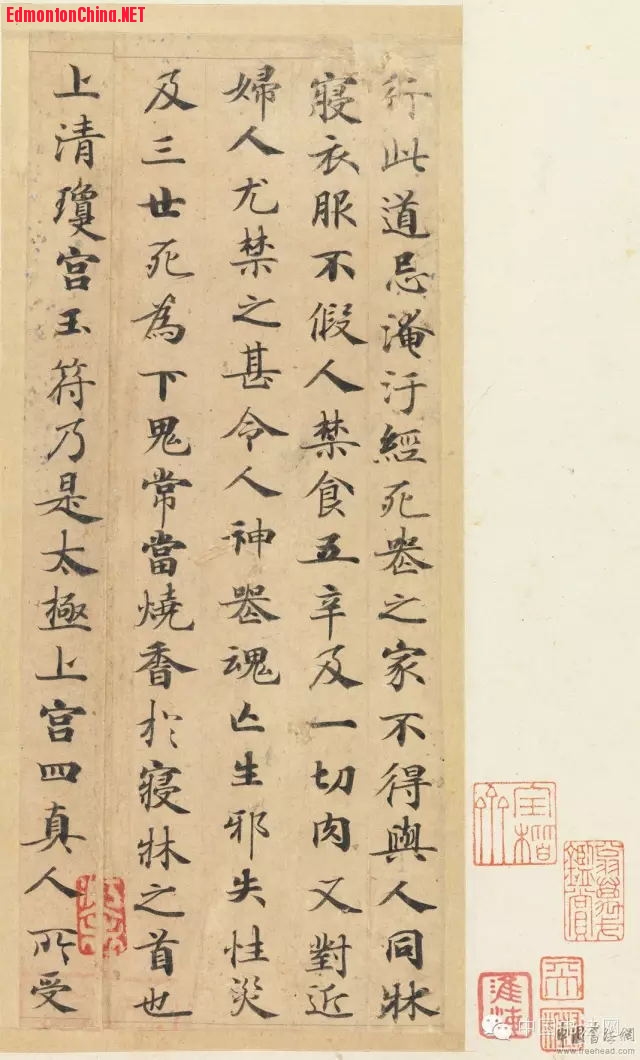 EdmontonChina.NET
行此道忌淹汙經死喪之家不得與人同牀
寢衣服不假人禁食五辛及一切肉又對近
婦人尤禁之甚令人神喪魂亡生邪失性災
及三世死為下鬼常當燒香於寢牀之首也
上清瓊宮玉符乃是太極上宮四真人所受
www.freehead.com